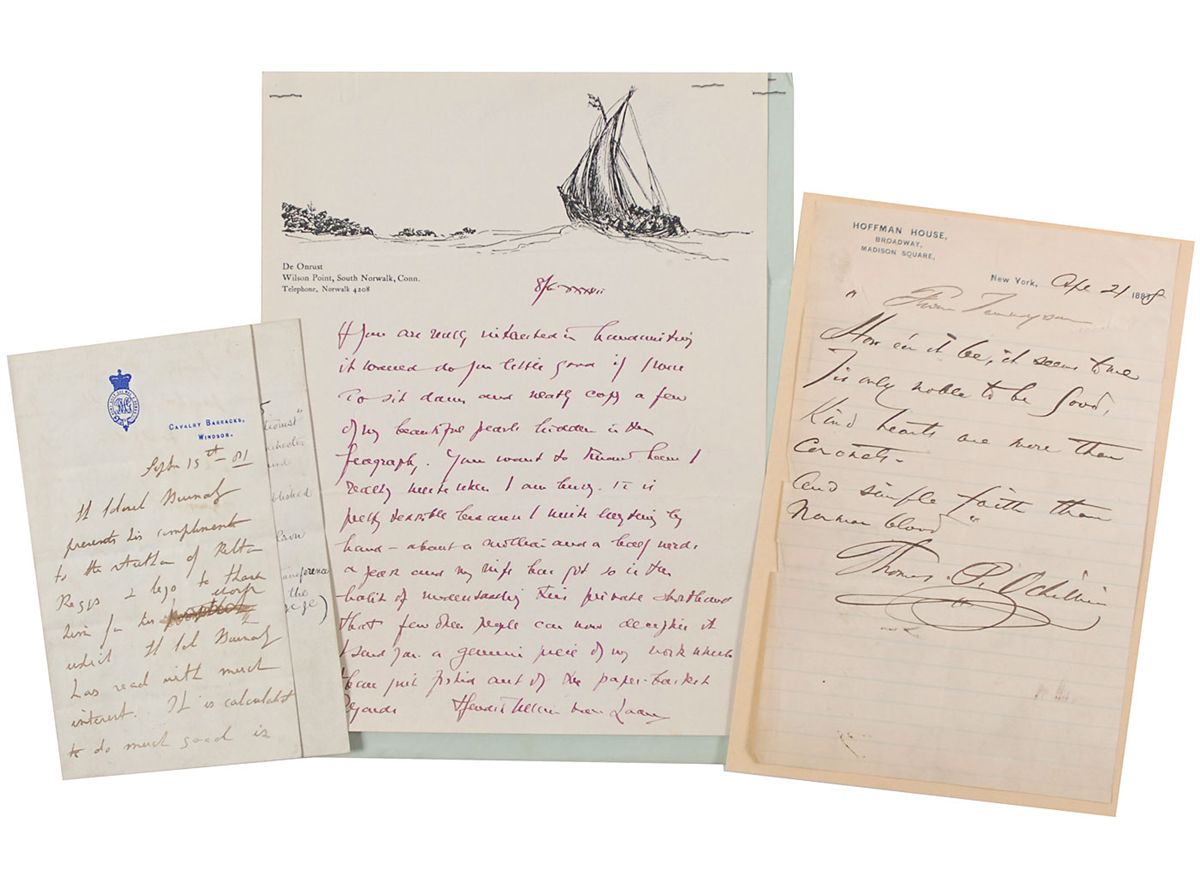 CAVALRY BARRACKS,
WINDSOR.
Septr 15th 81
Lt Colonel Burnaby
presents his compliments
to the Author of
Raggs & begs to thank
him for his
which Lt Col Burnaby
has read with much
interest. It is calculated
to do much good is
ublished
the
De Onrust
Wilson Point, South Norwalk, Conn.
Telephone, Norwalk 4208
If you are really interested in handwriting
it would do you little good if I were
to sit down and neatly copy a few
of my beautiful pearls hidden in the
. You want to know how I
really write when I am busy. It is
pretty terrible because I write everything by
hand – about a million and a half words
a year and my wife has got so in the
habit of understanding this private shorthand
that few other people can now decipher it
I send you a genuine piece of my work which
I have just fished out of the paper-basket
regards Hendrik Willem van Loon
HOFFMAN HOUSE,
BROADWAY,
MADISON SQUARE,
New York, Apl 21 1888
"From Tennyson
How e'er it be, it seems to me
Tis only noble to be Good,
Kind hearts are more than
Coronets-
And simple faith than
Norman blood"
Thomas P. Ochiltree